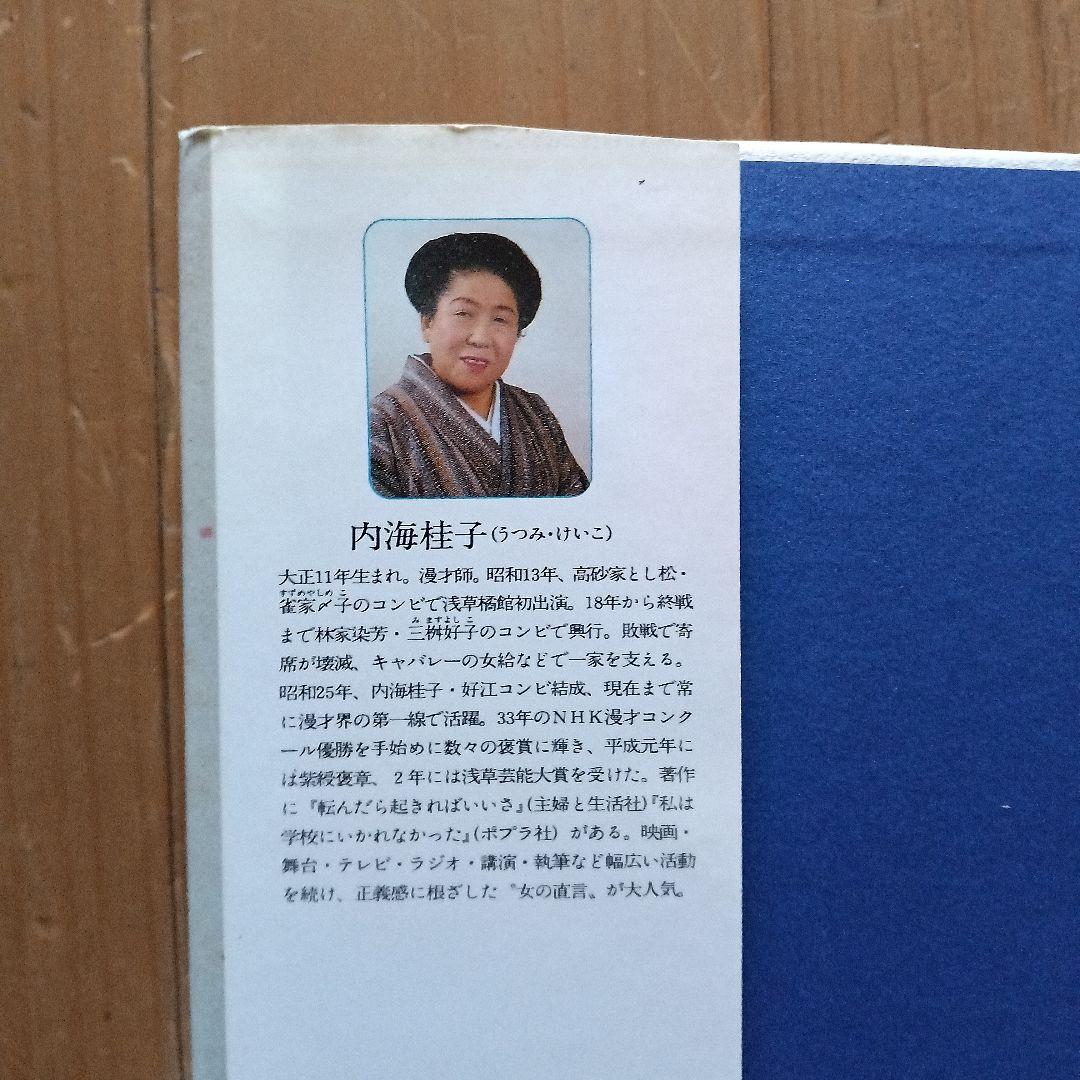 内海桂子(うつみ・けいこ)
大正11年生まれ。漫才師。昭和13年、高砂家とし松・
雀家〆子のコンビで浅草橘館初出演。18年から終戦
すずめやしめ こ
まで林家染芳・三桝好子のコンビで興行。敗戦で寄
み ますよし こ
席が壊滅、キャバレーの女給などで一家を支える。
昭和25年、内海桂子・好江コンビ結成、現在まで常
に漫才界の第一線で活躍。33年のNHK漫才コンク
ール優勝を手始めに数々の褒賞に輝き、平成元年に
は紫綬褒章、2年には浅草芸能大賞を受けた。著作
に『転んだら起きればいいさ』(主婦と生活社)『私は
学校にいかれなかった』(ポプラ社)がある。映画・
舞台・テレビ・ラジオ・講演・執筆など幅広い活動
を続け、正義感に根ざした〝女の直言〟が大人気。